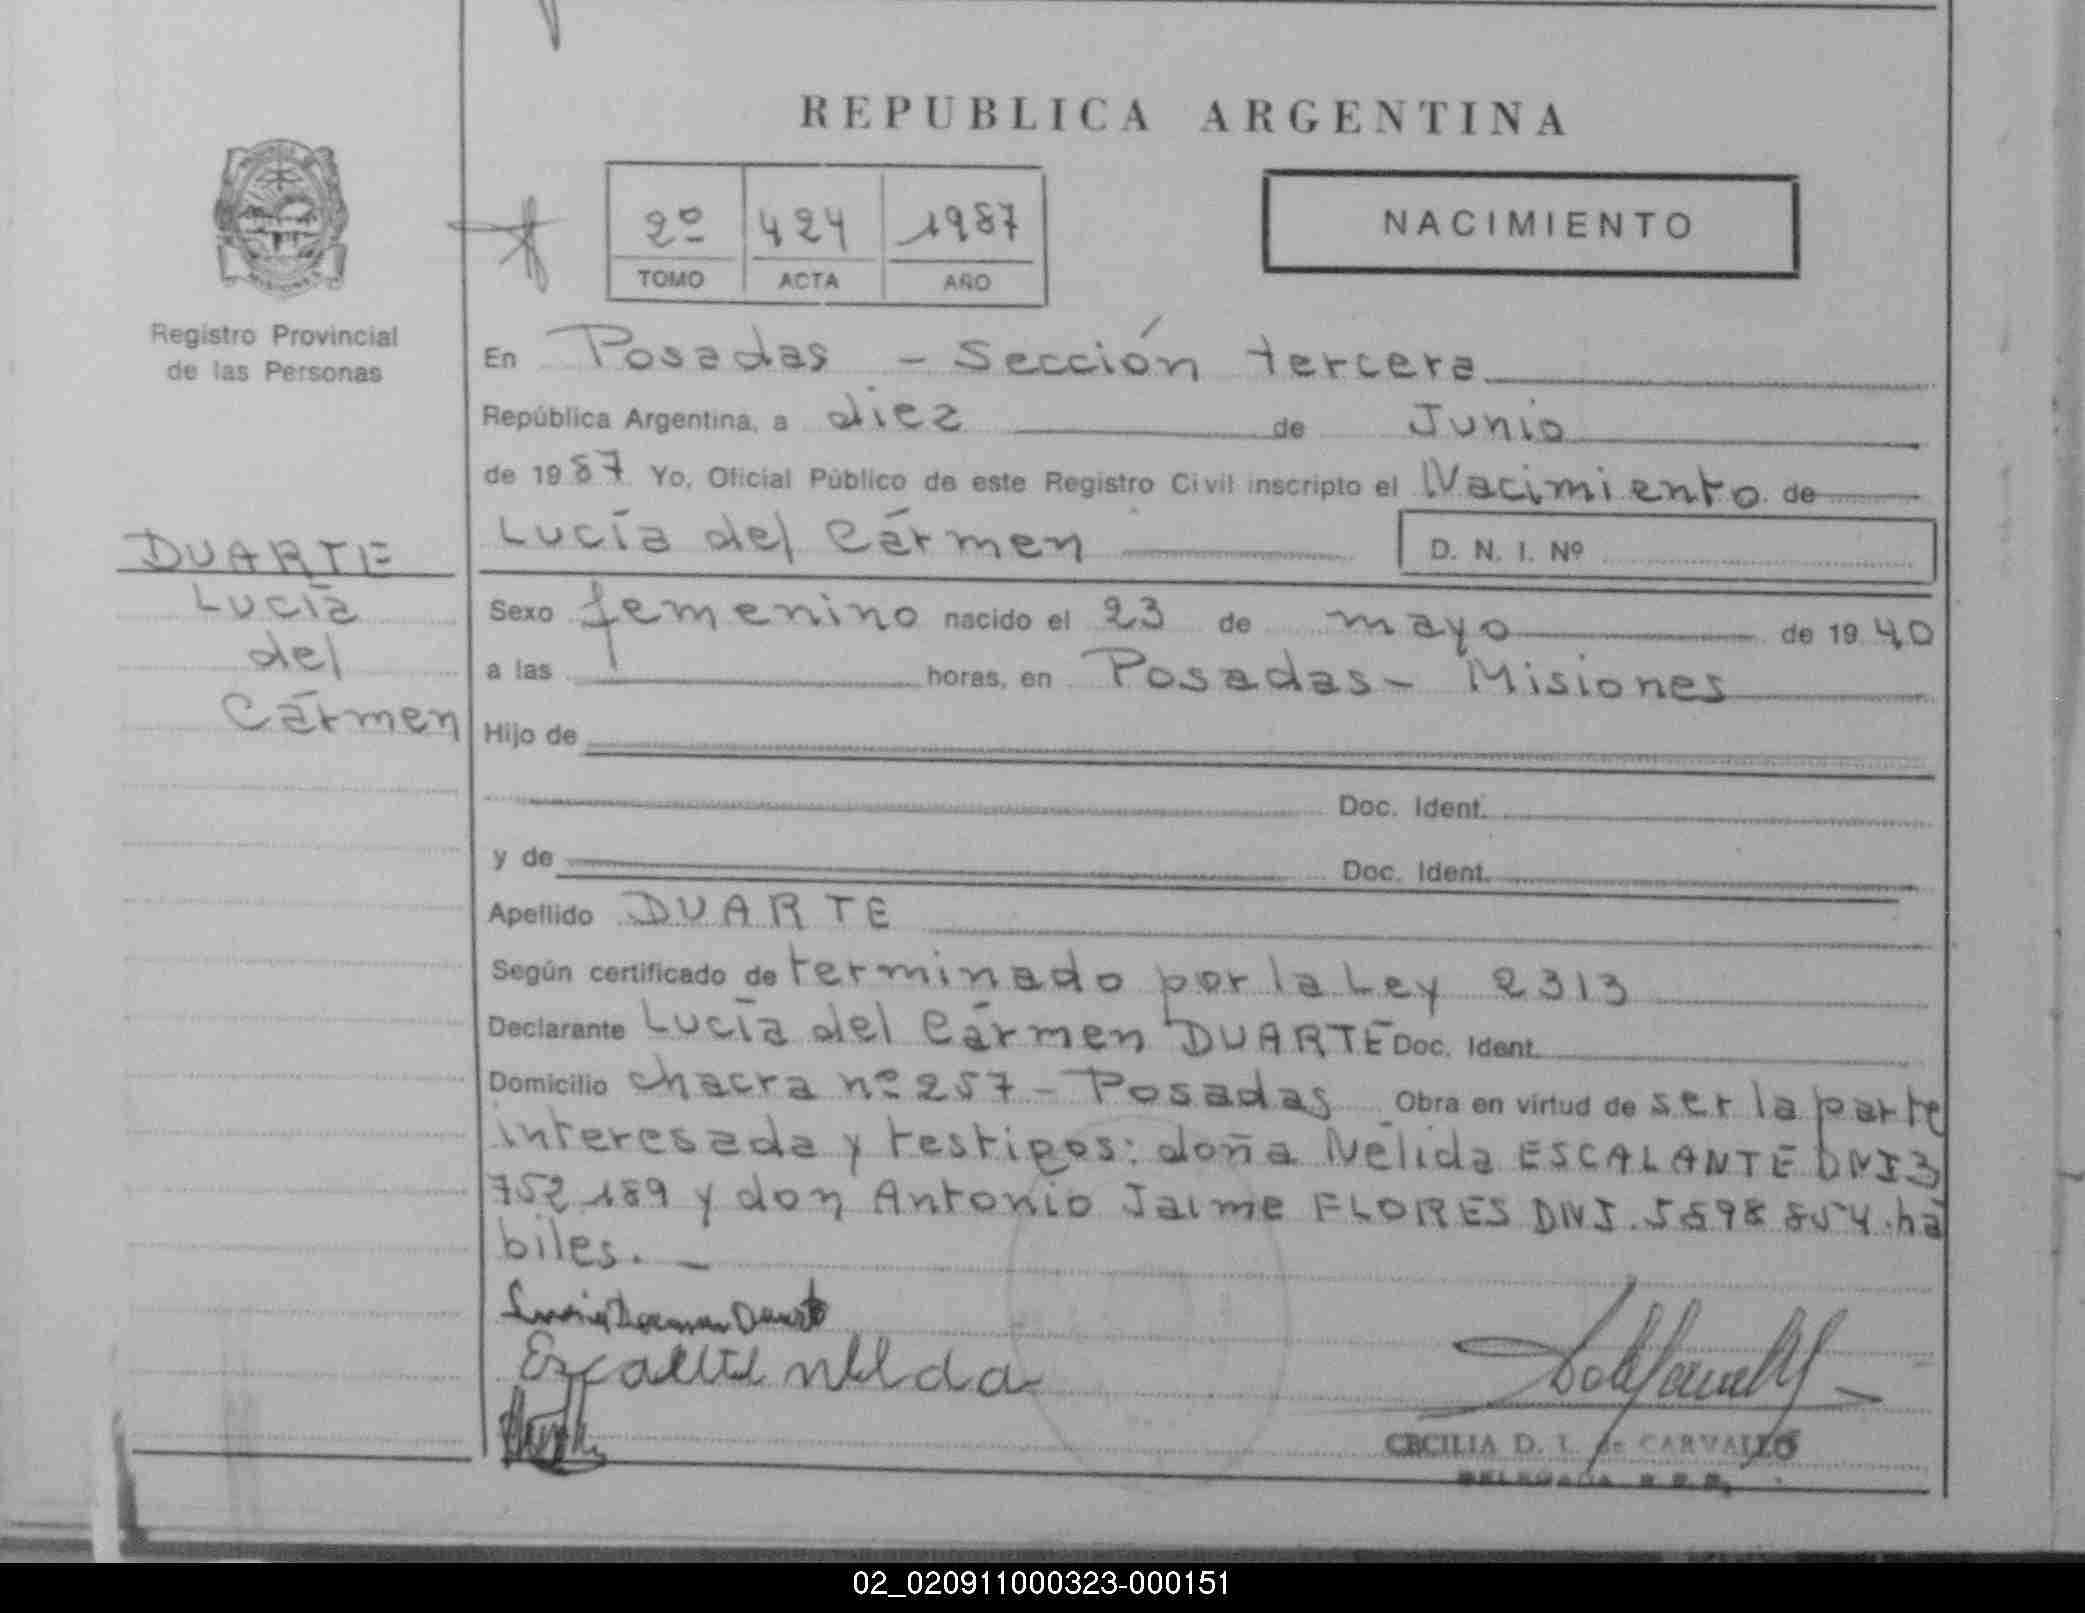 REPUBLICA ARGENTINA
2º 424 1987
TOMO ACTA AÑO
NACIMIENTO
Registro Provincial
de las Personas
En Posadas - Sección tercera
República Argentina, a diez de Junio
de 1987 Yo, Oficial Público de este Registro Civil inscripto el Nacimiento de
Lucía del Cármen D. N. I. Nº
DUARTE
Lucía
del
Cármen
Sexo femenino nacido el 23 de mayo de 1940
a las horas, en Posadas - Misiones
Hijo de
Doc. Ident.
y de Doc. Ident.
Apellido DUARTE
Según certificado de terminado por la Ley 2313
Declarante Lucía del Cármen DUARTE Doc. Ident.
Domicilio chacra nº 257 - Posadas Obra en virtud de ser la parte
interesada y testigos: doña Nélida ESCALANTE DNI 3
752 189 y don Antonio Jaime FLORES DNI. 5898854. há
biles. -
CECILIA D. I. de CARVALLO
DELEGADA R.P.P.
02_020911000323-000151